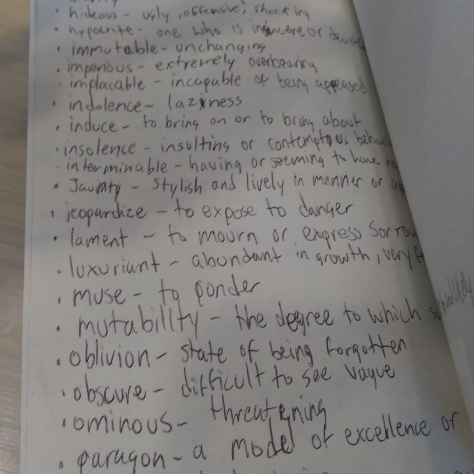 • hideous - ugly, offensive, shocking
• hypocrite - one who is insincere or
• immutable - unchanging
• imperious - extremely overbearing
• implacable - incapable of being appeased
• indolence - laziness
• induce - to bring on or to bring about
• insolence - insulting or contemptous
• interminable - having or seeming to have
• Jaunty - Stylish and lively in manner or
• jeopardize - to expose to danger
• lament - to mourn or express Sorrow
• luxuriant - abundant in growth, very
• muse - to ponder
• mutability - the degree to which
• oblivion - state of being forgotten
• obscure - difficult to see vague
• ominous - threatening
• paragon - a model of excellence or